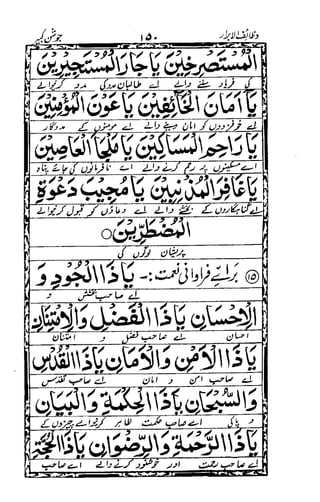 وظائف الابرار ۱۵۰ جوشن کبیر
الْمُسْتَصْرِخِیْنَ یَا جَارَ الْمُسْتَجِیْرِیْنَ
کی فریاد سننے والے اے طالبان مدد کی مدد کرنیوالے
یَا اَمَانَ الْخَائِفِیْنَ یَا عَوْنَ الْمُؤْمِنِیْنَ
اے خوفزدوں کو امان دینے والے اے مومنوں کے مددگار
یَا رَاحِمَ الْمَسَاکِیْنَ یَا مَلْجَأَ الْعَاصِیْنَ
اے مسکینوں پر رحم کرنے والے اے نافرمانوں کی جائے پناہ
یَا غَافِرَ الْمُذْنِبِیْنَ یَا مُجِیْبَ دَعْوَةِ
اے گناہگاروں کے بخشنے والے اے دعاؤں کو قبول کرنیوالے
الْمُضْطَرِّیْنَ○
پریشان لوگوں کی
(۱۵) برائے فراوانی نعمت :۔ یَا ذَا الْجُوْدِ وَ
اے صاحب بخشش و
الْاِحْسَانِ یَا ذَا الْفَضْلِ وَالْاِمْتِنَانِ
احسان اے صاحب فضل و امتنان
یَا ذَا الْاَمْنِ وَالْاَمَانِ یَا ذَا الْقُدْسِ
اے صاحب امن و امان اے صاحب تقدس
وَالسُّبْحَانِ یَا ذَا الْحِکْمَةِ وَالْبَیَانِ
و پاکی اے صاحب حکمت ظاہر کرنیوالے چیزوں کے
یَا ذَا الرَّحْمَةِ وَالرِّضْوَانِ یَا ذَا الْحُجَّةِ
اے صاحب رحمت اور خوشنود کرنے والے اے صاحب